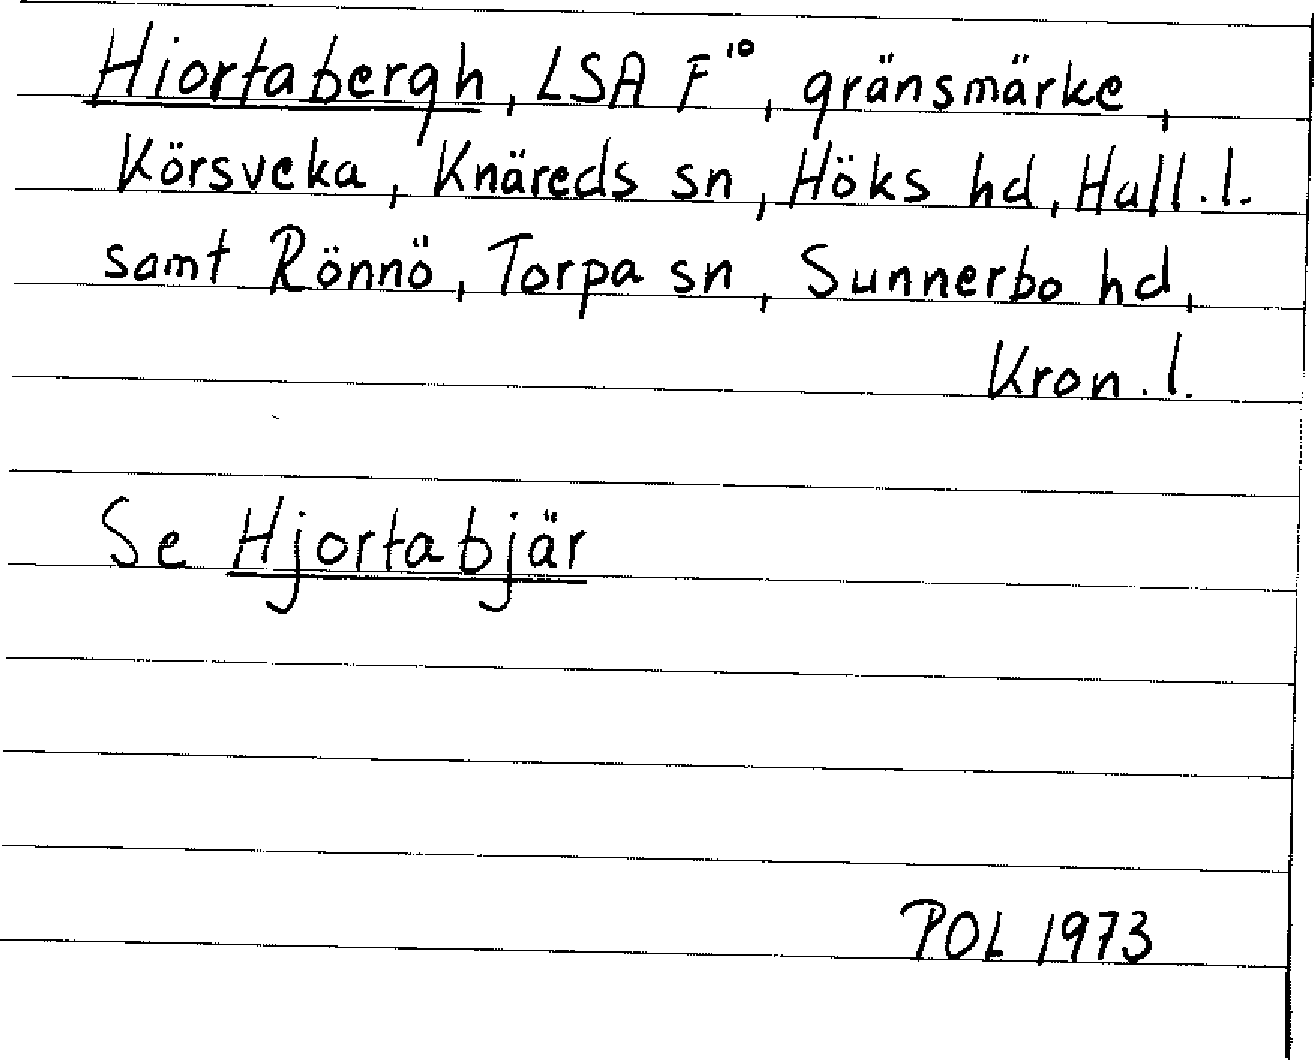 Hiortabergh, LSA F¹⁰, gränsmärke,
Körsveka, Knäreds sn, Höks hd, Hall.l.
samt Rönnö, Torpa sn, Sunnerbo hd,
Kron.l.
Se Hjortabjär
POL 1973